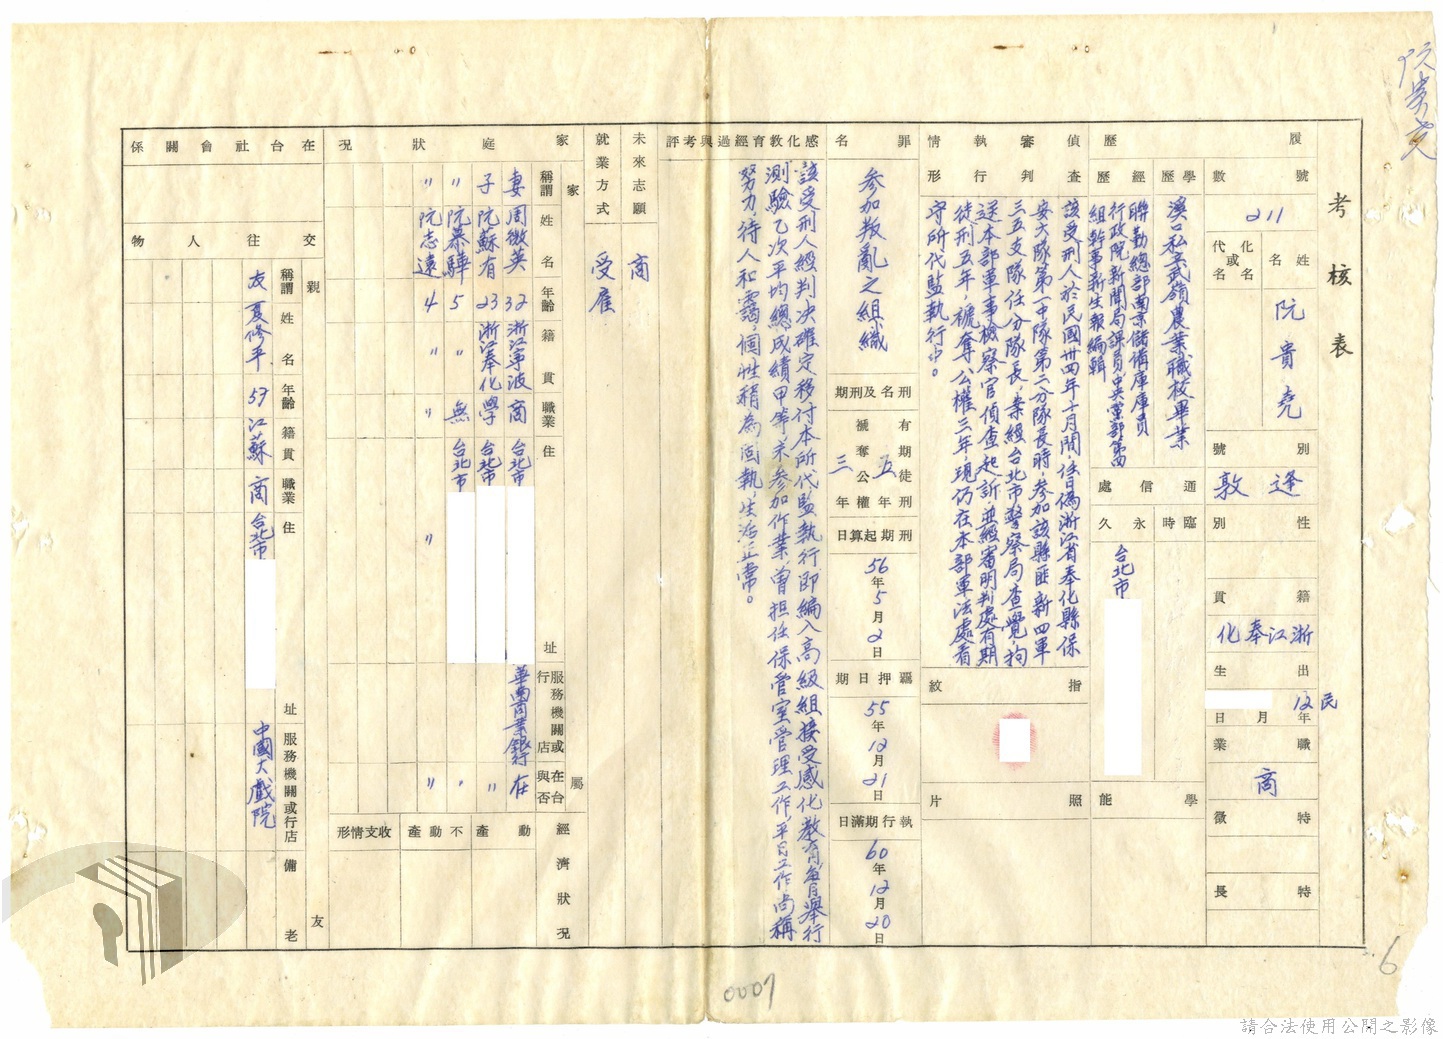 阮貴堯
考核表
履歷
號數
211
姓名
阮貴堯
化名或代名
別號
逢敦
性別
籍貫
浙江奉化
出生
民12年
月
日
職業
商
特徵
特長
學歷
溪口私立武嶺農業職校畢業
經歷
聯勤總部南京儲備庫庫員
行政院新聞局課員中央黨部第四
組幹事新生報編輯
通信處
臨時
永久
台北市
學能
偵查審判執行情形
該受刑人於民國卅四年十月間,任日偽浙江省奉化縣保
安大隊第一中隊第二分隊長時,參加該縣匪新四軍
三五支隊任分隊長,案經台北市警察局查覺,拘
送本部軍事檢察官偵查起訴並經審明判處有期
徒刑五年,褫奪公權三年,現仍在本部軍法處看
守所代監執行中。
指紋
照片
罪名
參加叛亂之組織
刑名及刑期
有期徒刑五年
褫奪公權三年
刑期起算日
56年5月2日
羈押日期
55年12月21日
執行期滿日
60年12月20日
感化教育經過與考評
該受刑人經判決確定移付本所代監執行即編入高級組接受感化教育每月舉行
測驗乙次平均總成績甲等,參加作業,曾担任保管室管理工作,平日工作尚稱
努力,待人和靄,個性稍為固執,生活正常。
未來志願
商
就業方式
受雇
家庭狀況
家屬
稱謂 姓名 年齡 籍貫 職業 住址 服務機關或行店 在台與否
妻 周微英 32 浙江寧波 商 台北市 華南商業銀行 在
子 阮蘇有 23 浙江奉化 學 台北市 〃
〃 阮慕驊 5 〃 無 台北市 〃
〃 阮志遠 4 〃 〃 〃 〃
經濟狀況
動產
不動產
收支情形
在台社會關係
親友
交往人物
稱謂 姓名 年齡 籍貫 職業 住址 服務機關或行店 備考
友 夏修平 57 江蘇 商 台北市 中國大戲院
6
0007
請合法使用公開之影像